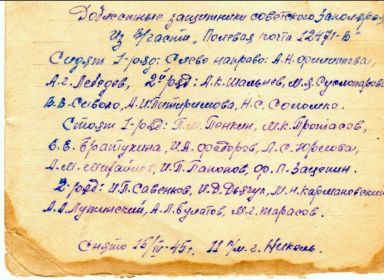 Доблестные защитники советского Заполярья
Из В/части „Полевая почта 12471-В"
Сидят 1-ряд: Слево направо: А.Н. Филиппова,
А.Г. Лебедев, 2й ряд: А.К. Шальнев, М.Я. Сухопарова
В.В. Сиволо, А.И. Питиримова, Н.С. Соломко.
Стоят 1-ряд: П.М. Пенкин, М.К. Протасов,
В.Е. Братухина, И.А. Федоров, Л.С. Юрьева,
А.М. Михайлов, И.П. Папонов, Ф.П. Зацепин.
2-ряд: И.П. Савенков, И.Д. М.Н. Кармановский
А.А. Лужинский, А.П. Булатов, М.Г. Тарасов.
Снято 15/IV-45г. г. Никель.